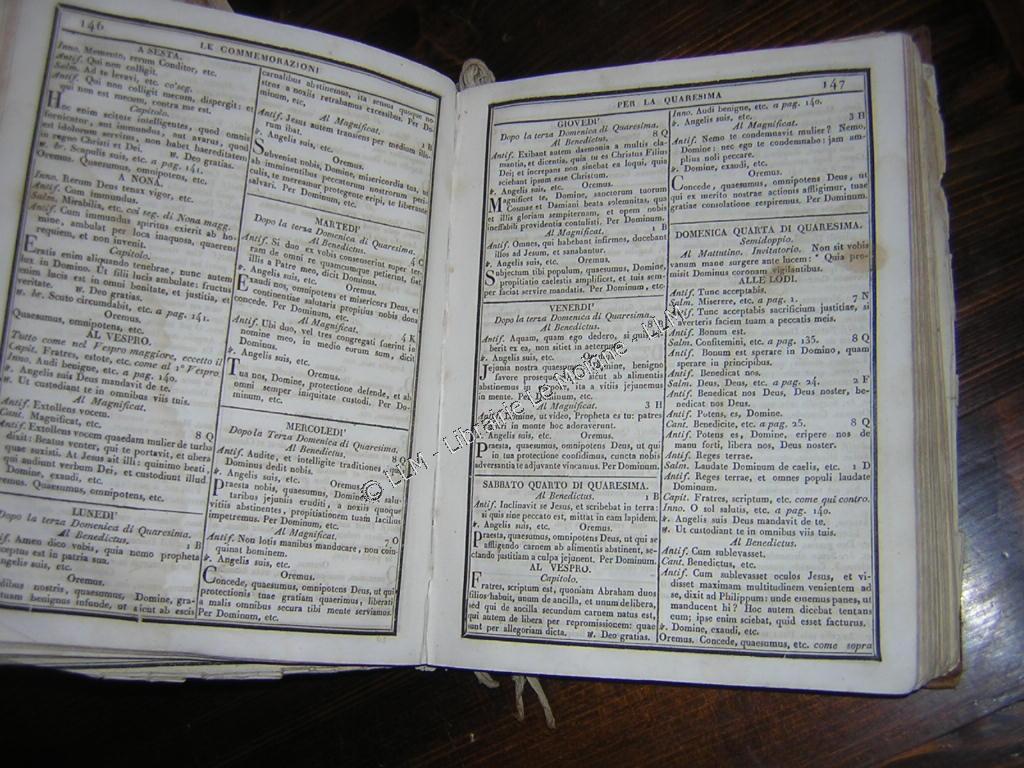 146
LE COMMEMORAZIONI
A SESTA.
Inno. Memento, rerum Conditor, etc.
Antif. Qui non colligit.
Salm. Ad te levavi, etc. co'seg.
Antif. Qui non colligit mecum, dispergit: et
qui non est mecum, contra me est.
Capitolo.
Hoc enim scitote intelligentes, quod omnis
fornicator, aut immundus, aut avarus, quod
est idolorum servitus, non habet haereditatem
in regno Christi et Dei. ℟. Deo gratias.
℟. br. Scapulis suis, etc. a pag. 141.
Oremus. Quaesumus, omnipotens, etc.
A NONA.
Inno. Rerum Deus tenax vigor, etc.
Antif. Cum immundus.
Salm. Mirabilia, etc. coi seg. di Nona magg.
Antif. Cum immundus spiritus exierit ab ho-
mine, ambulat per loca inaquosa, quaerens
requiem, et non invenit.
Capitolo.
Eratis enim aliquando tenebrae, nunc autem
lux in Domino. Ut filii lucis ambulate: fructus
enim lucis est in omni bonitate, et justitia, et
veritate. ℟. Deo gratias.
℟. br. Scuto circumdabit, etc. a pag. 141.
Oremus.
Quaesumus, omnipotens, etc.
AL VESPRO.
Tutto come nel Vespro maggiore, eccetto il
Capit. Fratres, estote, etc. come al 1° Vespro
Inno. Audi benigne, etc. a pag. 140.
℣. Angelis suis Deus mandavit de te.
℟. Ut custodiant te in omnibus viis tuis.
Al Magnificat.
Antif. Extollens vocem. 8 Q
Cant. Magnificat, etc.
Antif. Extollens vocem quaedam mulier de turba
dixit: Beatus venter, qui te portavit, et ubera
quae suxisti. At Jesus ait illi: quinimo beati,
qui audiunt verbum Dei, et custodiunt illud.
Domine, exaudi, etc.
Oremus. Quaesumus, omnipotens, etc.
LUNEDI'
Dopo la terza Domenica di Quaresima.
Al Benedictus. 1 B
Amen dico vobis, quia nemo propheta
acceptus est in patria sua.
Angelis suis, etc.
Oremus.
nostris, quaesumus, Domine, gra-
tuam benignus infunde, ut sicut ab escis
carnalibus abstinemus, ita sensus quoque no-
stros a noxiis retrahamus excessibus. Per Do-
minum, etc.
Al Magnificat.
Antif. Jesus autem transiens per medium illo-
rum ibat. 1 B
℣. Angelis suis, etc.
Oremus.
Subveniat nobis, Domine, misericordia tua, ut
ab imminentibus peccatorum nostrorum peri-
culis, te mereamur protegente eripi, te liberante
salvari. Per Dominum, etc.
MARTEDI'
Dopo la terza Domenica di Quaresima.
Al Benedictus. 4 C
Antif. Si duo ex vobis consenserint super ter-
ram de omni re quamcumque petierint, fiat
illis a Patre meo, dicit Dominus.
℣. Angelis suis, etc.
Oremus.
Exaudi nos, omnipotens et misericors Deus, et
continentiae salutaris propitius nobis dona
concede. Per Dominum, etc.
Al Magnificat. 4 K
Antif. Ubi duo, vel tres congregati fuerint in
nomine meo, in medio eorum sum, dicit
Dominus.
℣. Angelis suis, etc.
Oremus.
Tua nos, Domine, protectione defende, et ab
omni semper iniquitate custodi. Per Do-
minum, etc.
MERCOLEDI'
Dopo la Terza Domenica di Quaresima.
Al Benedictus. 8 Q
Antif. Audite, et intelligite traditiones, quas
Dominus dedit nobis.
℣. Angelis suis, etc. Oremus.
Praesta nobis, quaesumus, Domine, ut salu-
taribus jejuniis eruditi, a noxiis quoque
vitiis abstinentes, propitiationem tuam facilius
impetremus. Per Dominum, etc.
Al Magnificat. 7 O
Antif. Non lotis manibus manducare, non coin-
quinat hominem.
℣. Angelis suis, etc.
Oremus.
Concede, quaesumus, omnipotens Deus, ut qui
protectionis tuae gratiam quaerimus, liberati
a malis omnibus secura tibi mente serviamus.
Per Dominum, etc.
PER LA QUARESIMA
147
GIOVEDI'
Dopo la terza Domenica di Quaresima.
Al Benedictus. 8 Q
Antif. Exibant autem daemonia a multis cla-
mantia, et dicentia, quia tu es Christus Filius
Dei; et increpans non sinebat ea loqui, quia
sciebant ipsum esse Christum.
℣. Angelis suis, etc. Oremus.
Magnificet te, Domine, sanctorum tuorum
Cosmae et Damiani beata solemnitas, qua
et illis gloriam sempiternam, et opem nobis
ineffabili providentia contulisti. Per Dominum.
Al Magnificat. 1 B
Antif. Omnes, qui habebant infirmos, ducebant
illos ad Jesum, et sanabantur.
℣. Angelis suis, etc. Oremus.
Subjectum tibi populum, quaesumus, Domine,
propitiatio caelestis amplificet, et tuis sem-
per faciat servire mandatis. Per Dominum, etc
VENERDI'
Dopo la terza Domenica di Quaresima.
Al Benedictus.
Antif. Aquam, quam ego dedero, si quis bi-
berit ex ea, non sitiet in aeternum.
℣. Angelis suis, etc. Oremus.
Jejunia nostra quaesumus, Domine, benigno
favore prosequere: ut sicut ab alimentis
abstinemus in corpore, ita a vitiis jejunemus
in mente. Per Dominum.
Al Magnificat. 3 H
Antif. Domine, ut video, Propheta es tu: patres
nostri in monte hoc adoraverunt.
℣. Angelis suis, etc. Oremus.
Praesta, quaesumus, omnipotens Deus, ut qui
in tua protectione confidimus, cuncta nobis
adversantia te adjuvante vincamus. Per Dominum.
SABBATO QUARTO DI QUARESIMA.
Al Benedictus. 1 B
Antif. Inclinavit se Jesus, et scribebat in terra:
si quis sine peccato est, mittat in eam lapidem.
℣. Angelis suis, etc. Oremus.
Praesta, quaesumus, omnipotens Deus, ut qui se
affligendo carnem ab alimentis abstinent, se-
ctando justitiam a culpa jejunent. Per Dominum.
AL VESPRO.
Capitolo.
Fratres, scriptum est, quoniam Abraham duos
filios habuit, unum de ancilla, et unum de libera,
sed qui de ancilla secundum carnem natus est,
qui autem de libera per repromissionem: quae
sunt per allegoriam dicta. ℟. Deo gratias.
Inno. Audi benigne, etc. a pag. 140.
℣. Angelis suis, etc.
Al Magnificat. 3 B
Antif. Nemo te condemnavit mulier? Nemo,
Domine: nec ego te condemnabo: jam am-
plius noli peccare.
℣. Domine, exaudi, etc.
Oremus.
Concede, quaesumus, omnipotens Deus, ut
qui ex merito nostrae actionis affligimur, tuae
gratiae consolatione respiremus. Per Dominum.
DOMENICA QUARTA DI QUARESIMA.
Semidoppio.
Al Mattutino. Invitatorio. Non sit vobis
vanum mane surgere ante lucem: * Quia pro-
misit Dominus coronam vigilantibus.
ALLE LODI.
Antif. Tunc acceptabis. 7 N
Salm. Miserere, etc. a pag. 1.
Antif. Tunc acceptabis sacrificium justitiae, si
averteris faciem tuam a peccatis meis.
Antif. Bonum est. 8 Q
Salm. Confitemini, etc. a pag. 135.
Antif. Bonum est sperare in Domino, quam
sperare in principibus.
Antif. Benedicat nos. 2 F
Salm. Deus, Deus, etc. a pag. 24.
Antif. Benedicat nos Deus, Deus noster, be-
nedicat nos Deus.
Antif. Potens es, Domine. 8 Q
Cant. Benedicite, etc. a pag. 25.
Antif. Potens es, Domine, eripere nos de
manu forti, libera nos, Deus noster.
Antif. Reges terrae. 1 D
Salm. Laudate Dominum de caelis, etc.
Antif. Reges terrae, et omnes populi laudate
Dominum.
Capit. Fratres, scriptum, etc. come qui contro.
Inno. O sol salutis, etc. a pag. 140.
℣. Angelis suis Deus mandavit de te.
℟. Ut custodiant te in omnibus viis tuis.
Al Benedictus.
Antif. Cum sublevasset.
Cant. Benedictus, etc.
Antif. Cum sublevasset oculos Jesus, et vi-
disset maximam multitudinem venientem ad
se, dixit ad Philippum: unde ememus panes, ut
manducent hi? Hoc autem dicebat tentans
eum; ipse enim sciebat, quid esset facturus.
℣. Domine, exaudi, etc.
Oremus. Concede, quaesumus, etc. come sopra
© LLM - Librairie Le Molène - LLM